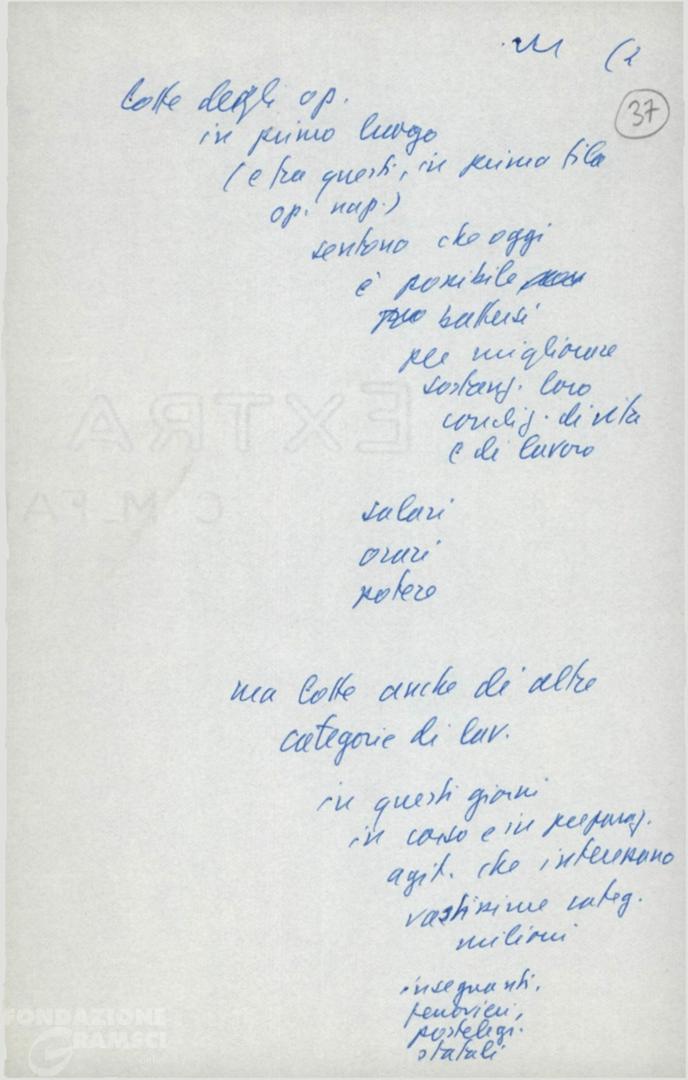 (2
37
lotte degli op.
in primo luogo
(e tra questi, in prima fila
op. nap.)
sentono che oggi
è possibile
battersi
per migliorare
sostanz. loro
condiz. di vita
e di lavoro
EXTRA
salari
orari
potere
ma lotte anche di altre
categorie di lav.
in questi giorni
in corso e in preparaz.
agit. che interessano
vastissime categ.
milioni
insegnanti,
ferrovieri,
postelegr.
statali
FONDAZIONE
GRAMSCI